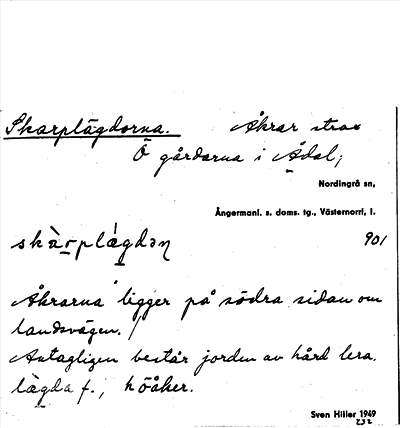 Skarplägdorna. Åkrar strax
Ö gårdarna i Ådal;
Nordingrå sn,
Ångermanl. s. doms. tg., Västernorrl. l.
skàrplágdəɳ 901
Åkrarna ligger på södra sidan om
landsvägen.
Antagligen består jorden av hård lera.
lägda f., höåker.
Sven Hiller 1949
232